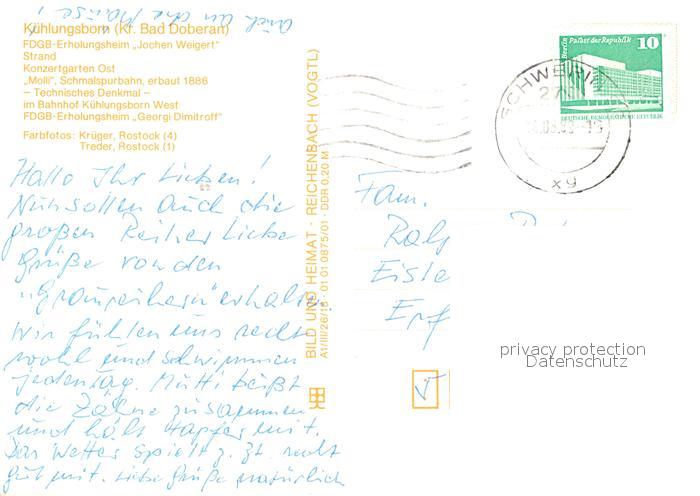 auch an die Mäuse!
Kühlungsborn (Kr. Bad Doberan)
FDGB-Erholungsheim „Jochen Weigert"
Strand
Konzertgarten Ost
„Molli", Schmalspurbahn, erbaut 1886
– Technisches Denkmal –
im Bahnhof Kühlungsborn West
FDGB-Erholungsheim „Georgi Dimitroff"
Farbfotos: Krüger, Rostock (4)
Treder, Rostock (1)
Hallo Ihr Lieben!
Nun sollen auch die
großen Reiher liebe
Grüße von den
"Graureihern" erhalten.
Wir fühlen uns recht
wohl und schwimmen
jeden Tag. Mutti beißt
die Zähne zusammen
und hält tapfer mit.
Das Wetter spielt z. Zt. recht
gut mit. Liebe Grüße natürlich
BILD UND HEIMAT · REICHENBACH (VOGTL)
A1/III/26/13 · 01 01 0875/01 · DDR 0,20 M
Berlin Palast der Republik
10
DEUTSCHE DEMOKRATISCHE REPUBLIK
SCHWERIN
27
xg
Fam.
Ralf
Eisle
Erf
privacy protection
Datenschutz